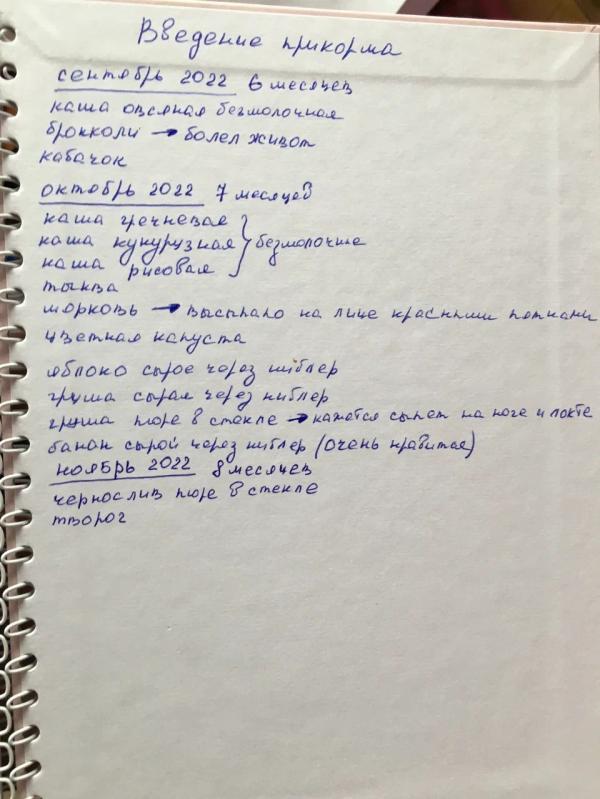 Введение прикорма
сентябрь 2022 6 месяцев
каша овсяная безмолочная
брокколи → болел живот
кабачок
октябрь 2022 7 месяцев
каша гречневая
каша кукурузная } безмолочные
каша рисовая
тыква
морковь → высыпало на лице красными пятнами
цветная капуста
яблоко сырое через ниблер
груша сырая через ниблер
груша пюре в стекле → кажется сыпет на ноге и локте
банан сырой через ниблер (очень нравится)
ноябрь 2022 8 месяцев
чернослив пюре в стекле
творог